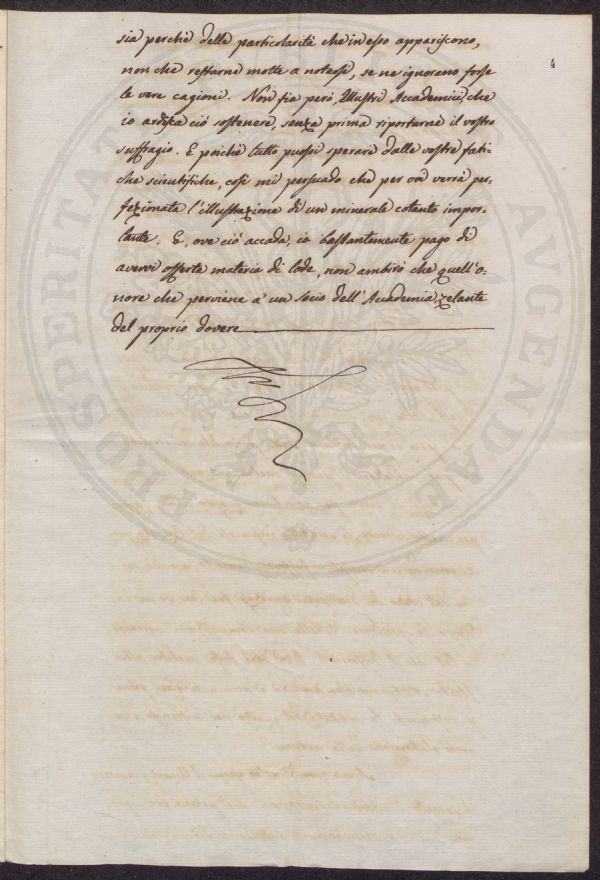 4
sia perchè delle particolarità che in esso appariscono,
non che restarne molte a notarsi, se ne ignorano forse
le vere cagioni. Non fia però, Illustri Accademici, che
io ardisca ciò sostenere, senza prima riportarne il vostro
suffragio. E poichè tutto puossi sperare dalle vostre fati-
che scientifiche, così mi persuado che per voi verrà per-
fezionata l'illustrazione di un minerale cotanto impor-
tante. E, ove ciò accada, io bastantemente pago di
avervi offerta materia di lode, non ambirò che quell'o-
nore che perviene a' un Socio dell'Accademia, zelante
del proprio dovere
PROSPERITAT AUGENDAE